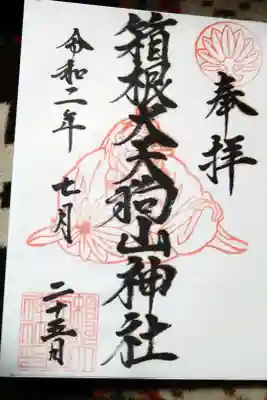 奉拝
箱根大天狗山神社
令和二年
七月
二十五日